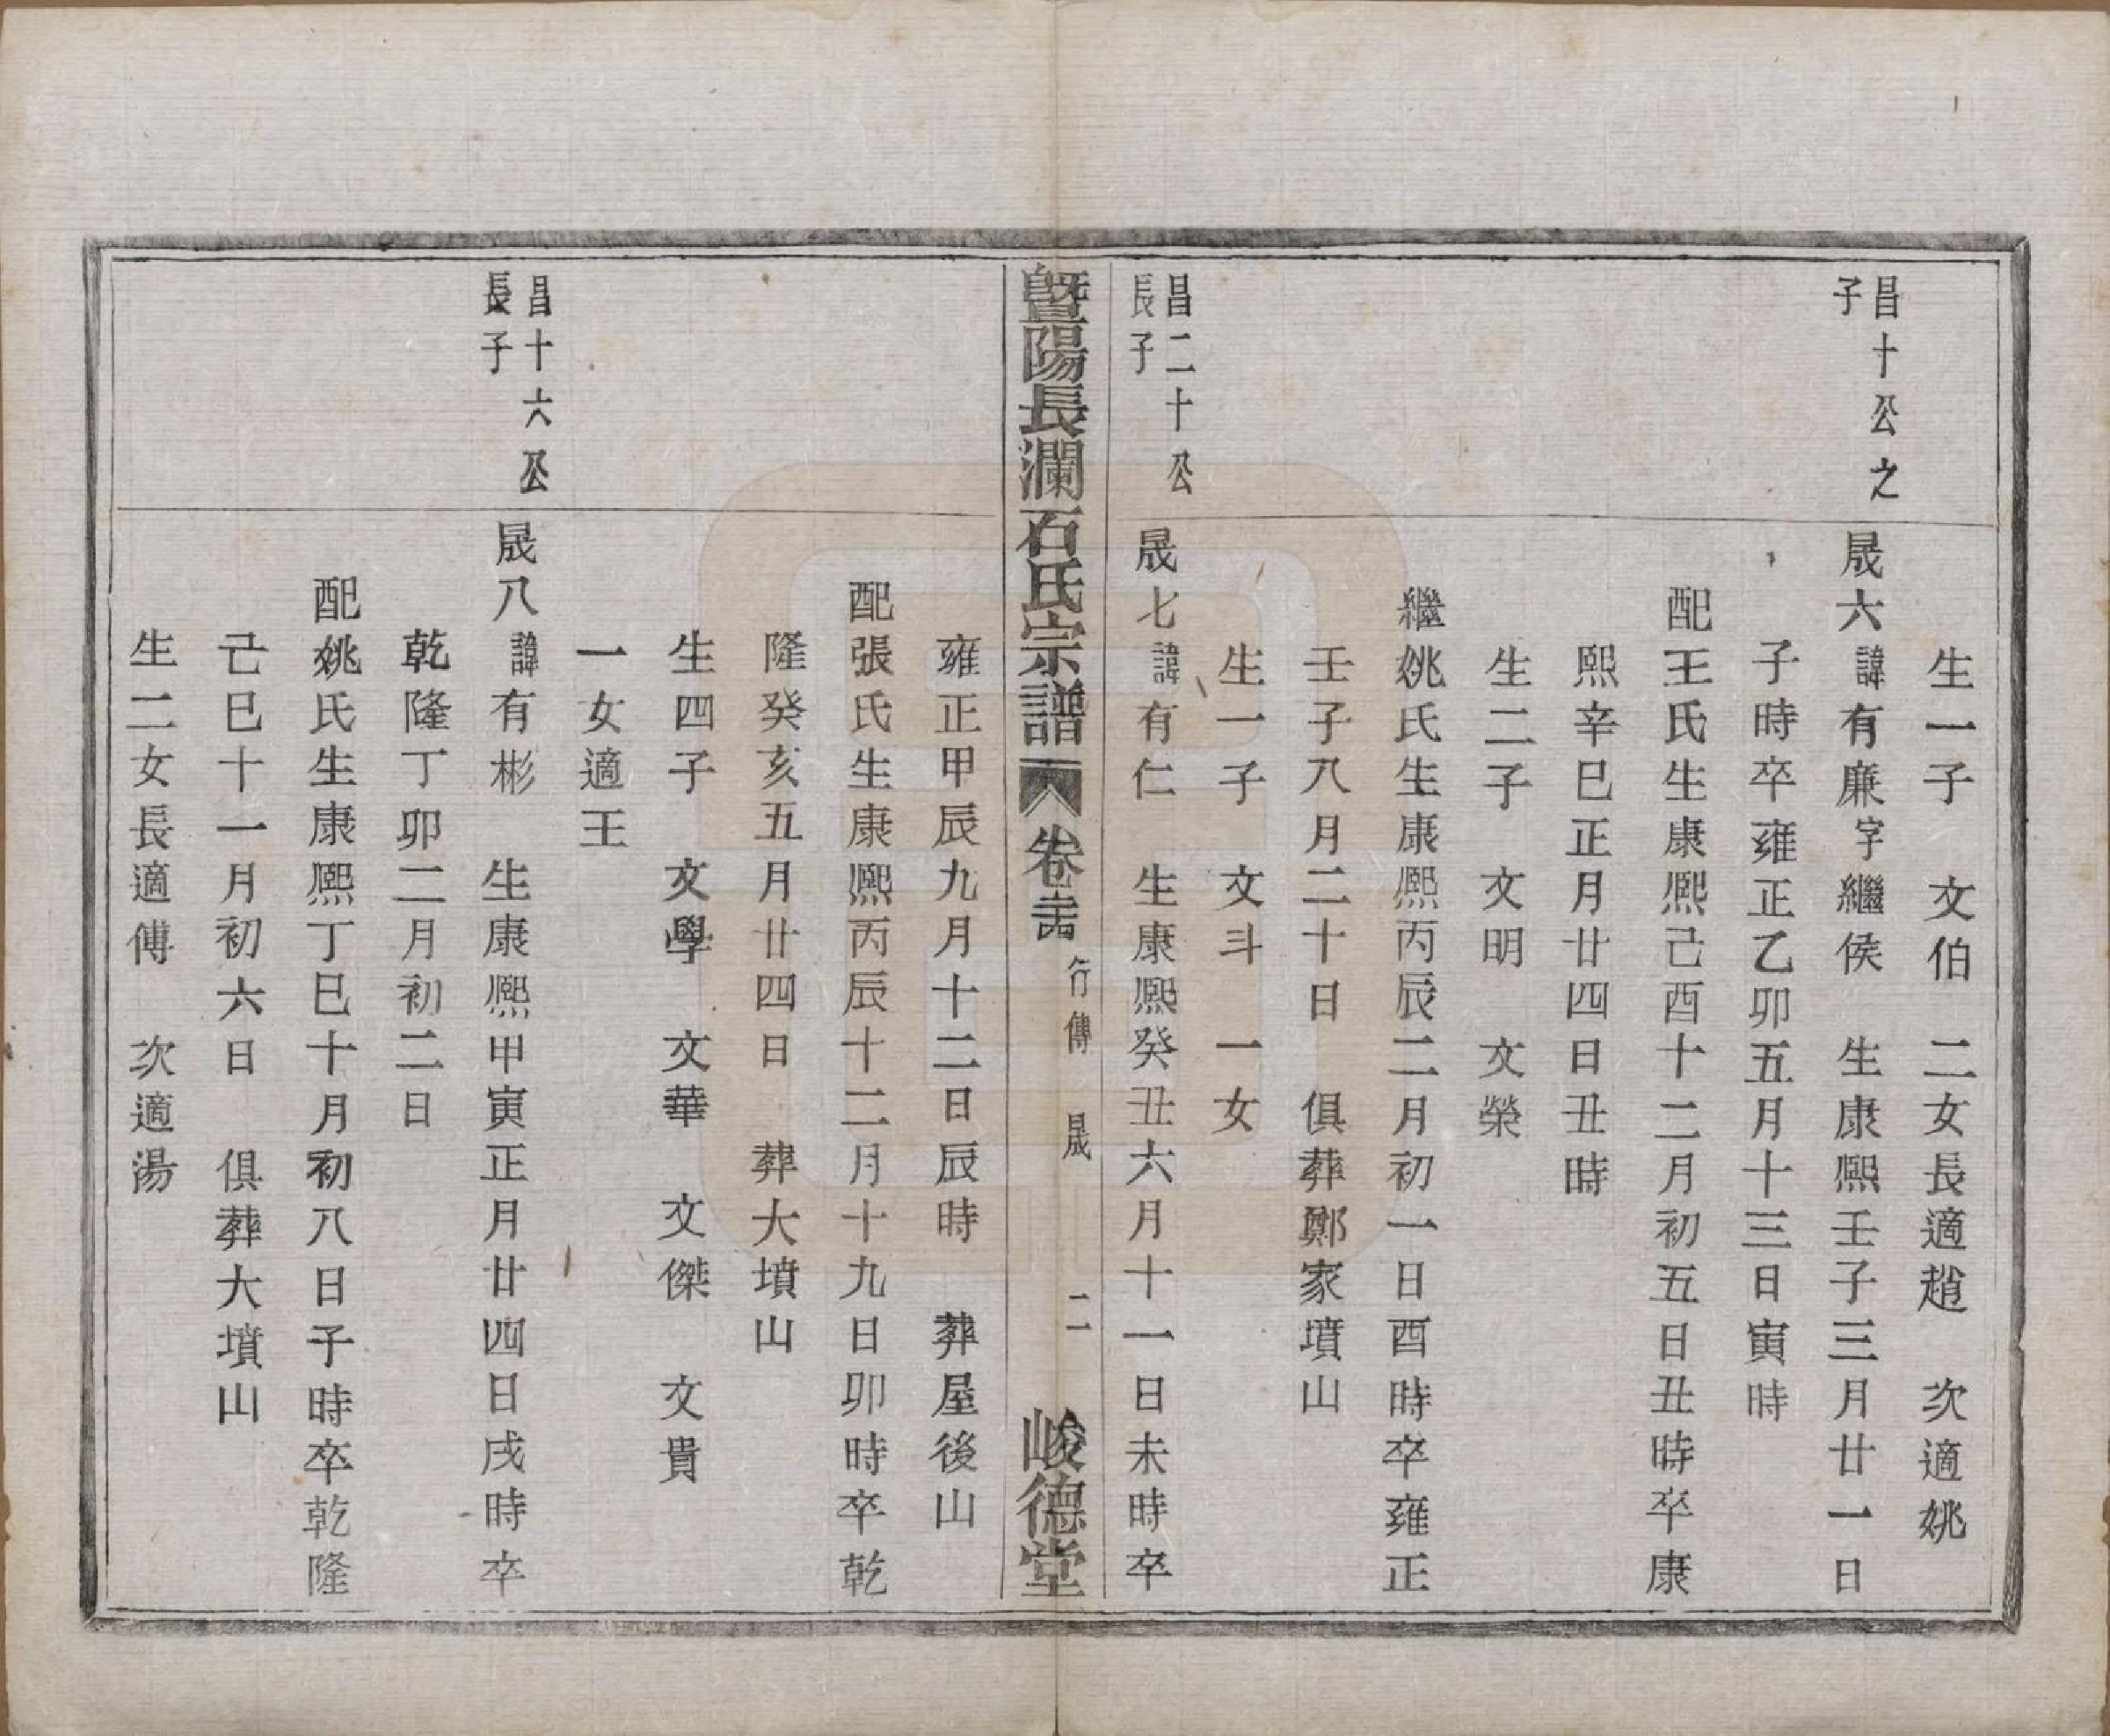 生一子　文伯　二女長適趙　次適姚
昌十公之
子
晟六諱有廉字繼侯　生康熙壬子三月廿一日
子時卒雍正乙卯五月十三日寅時
配王氏生康熙己酉十二月初五日丑時卒康
熙辛巳正月廿四日丑時
生二子　文明　文榮
繼姚氏生康熙丙辰二月初一日酉時卒雍正
壬子八月二十日　俱葬鄭家墳山
生一子　文斗　一女
昌二十公
長子
晟七諱有仁　生康熙癸丑六月十一日未時卒
暨陽長瀾石氏宗譜　卷　行傳　晟　二　峻德堂
雍正甲辰九月十二日辰時　葬屋後山
配張氏生康熙丙辰十二月十九日卯時卒乾
隆癸亥五月廿四日　葬大墳山
生四子　文學　文華　文傑　文貴
一女適王
昌十六公
長子
晟八諱有彬　生康熙甲寅正月廿四日戌時卒
乾隆丁卯二月初二日
配姚氏生康熙丁巳十月初八日子時卒乾隆
己巳十一月初六日　俱葬大墳山
生二女長適傅　次適湯